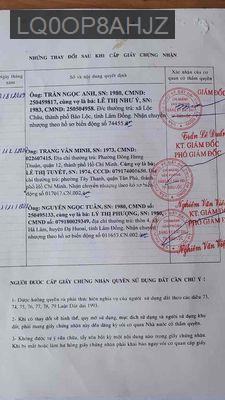 LQ0OP8AHJZ
NHỮNG THAY ĐỔI SAU KHI CẤP GIẤY CHỨNG NHẬN
Ngày tháng năm
Số và nội dung quyết định
Xác nhận của cơ quan có thẩm quyền
Ông: TRẦN NGỌC ANH, SN: 1980, CMND:
250459817, cùng vợ là bà: LÊ THỊ NHƯ Ý, SN:
1983, CMND: 250504958. Đ/c thường trú: xã Lộc
Châu, thành phố Bảo Lộc, tỉnh Lâm Đồng. Nhận chuyển
nhượng theo hồ sơ biến động số 74455
GIÁM ĐỐC
Ông: TRANG VĂN MINH, SN: 1973, CMND:
022607415. Địa chỉ thường trú: Phường Đông Hưng
Thuận, quận 12, thành phố Hồ Chí Minh. Cùng vợ là bà:
LÊ THỊ TUYẾT, SN: 1974, CCCD: 079174001658. Địa
chỉ thường trú: phường Tây Thạnh, quận Tân Phú, thành
phố Hồ Chí Minh. Nhận chuyển nhượng theo hồ sơ biến
động số 017617.CN.002
KT. GIÁM ĐỐC
PHÓ GIÁM ĐỐC
Ông: NGUYỄN NGỌC TUẤN, SN: 1980, CMND số
250495133, cùng vợ là bà: LÝ THỊ PHƯỢNG, SN: 1980,
CMND số: 079180029349, địa chỉ thường trú: thôn 4, xã
Hà Lâm, huyện Đạ Huoai, tỉnh Lâm Đồng. Nhận chuyển
nhượng theo hồ sơ biến động số 011653.CN.002
KT. GIÁM ĐỐC
PHÓ GIÁM ĐỐC
NGƯỜI ĐƯỢC CẤP GIẤY CHỨNG NHẬN QUYỀN SỬ DỤNG ĐẤT CẦN CHÚ Ý :
1- Được hưởng quyền và phải thực hiện nghĩa vụ của người sử dụng đất theo các điều 73,
74, 75, 76, 77, 78, 79 Luật Đất đai 1993.
2- Khi có thay đổi về hình thể, quy mô sử dụng, mục đích sử dụng và người sử dụng khu
đất, phải mang giấy chứng nhận này đến đăng ký với cơ quan Nhà nước có thẩm quyền.
3- Không được tự ý sửa chữa, tẩy xóa bất kỳ một nội dung nào trong giấy chứng nhận.
Khi bị mất hoặc làm hư hỏng giấy chứng nhận phải khai báo ngay với cơ quan cấp giấy.